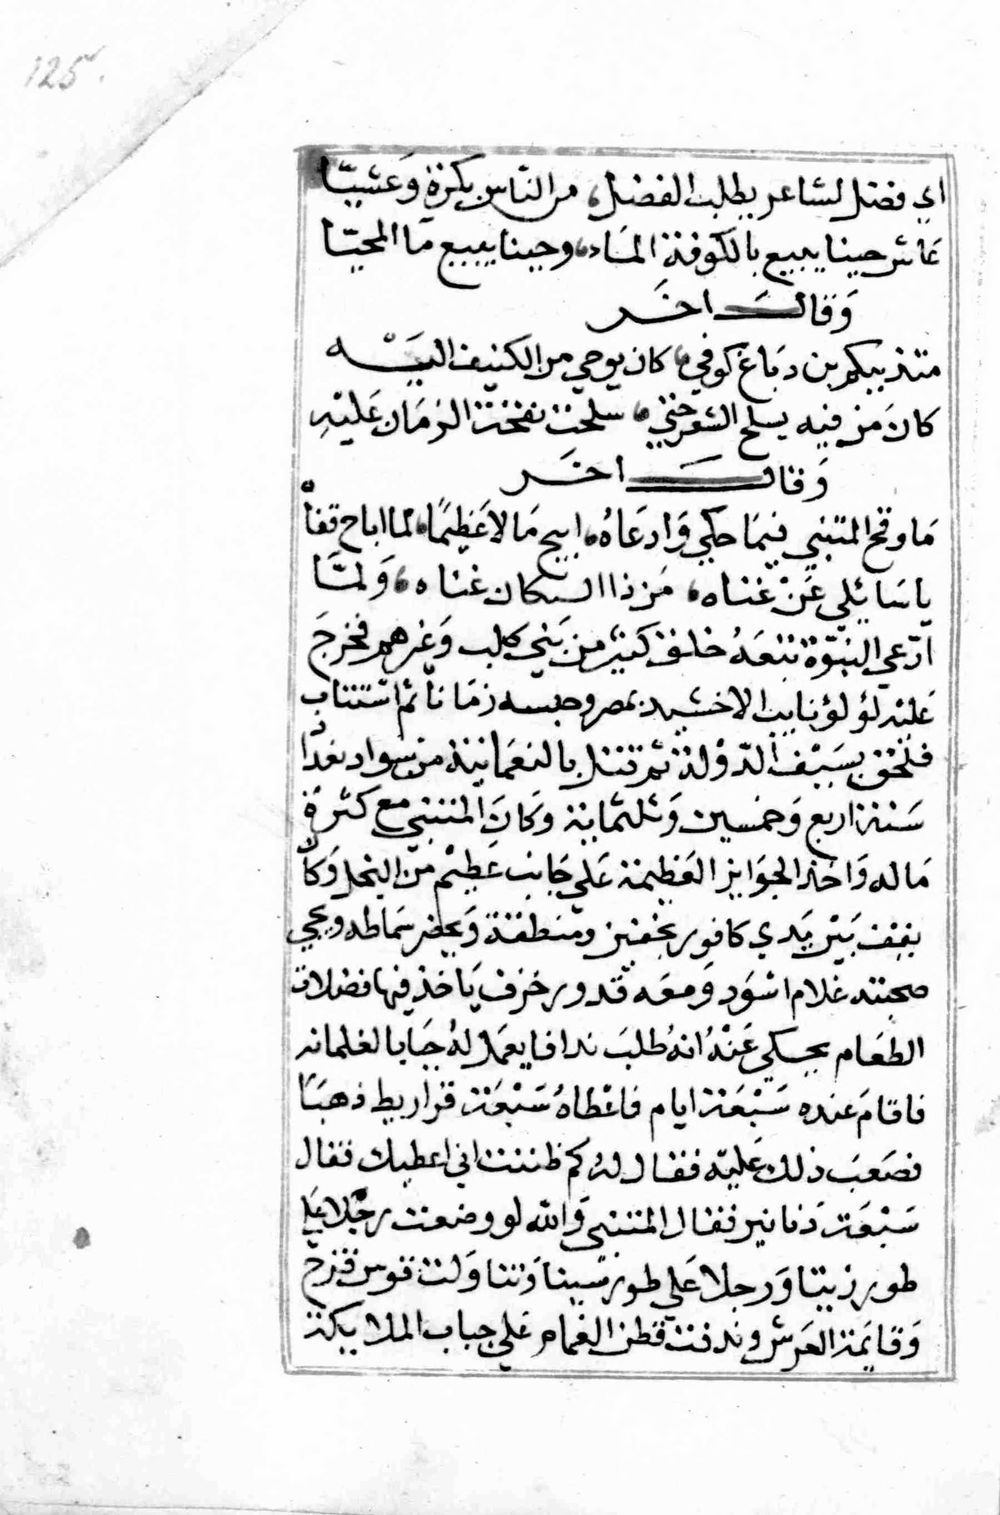 125.
اي فضل لشاعر يطلب الفضل، من الناس بكرة وَعَشيّا
عَاش حينا يبيع بالكوفة المَاء، وحينا يبيع مَا المحيّا
وَقالَ اخَر
متنبيكم بن دبَاغ كوفي، كان يوحي من الكنيف اليَه
كانَ مَن فيه يسلح الشعر حتي، سلحت فقحة الزمَان عَليْه
وَقالَ اخَر
مَا وقح المتنبي فيمَا حكي وَادعَاهُ، ابيح مَالا عَظيمًا، لما اباح قفاه
ياسَايلي عَنْ غناه، مَن ذا السكان غناه، وَلمّا
ادّعي النبوّة تبَعَهُ خلق كثير من بَني كلب وَغيرهم فخرجَ
عَليْه لؤلؤ نايب الاخشيد بمصر وحبسه زمَانا ثم اسْتتاب
فلحق بسَيْف الدّوْلة ثم قتل بالنعمَانية من سواد بغدَاد
سَنة اربع وَخمسين وَثلثماية وَكانَ المتنبي مع كثرة
مَاله وَاخذ الجوَايز العَظيمة عَلي جَانب عَظيْم من البخل وَكان
يقف بَيْن يَدي كافور بخفين ومنطقة وَيحضر سمَاطه ويجي
صحبته غلام اسْوَد وَمعَه قدور خزف يَاخذ فيها فضلات
الطعَام يحكي عَنْهُ انهُ طلبَ ندافا يعمَل لهُ جبَابا لغلمانه
فاقامَ عنده سَبْعَة ايام فاعْطاهُ سَبْعَة قراريط ذهبًا
فصَعبَ ذلك عَليْه فقال لهُ كم ظننت اني اعطيك فقال
سَبْعَة دَنانير فقال المتنبي وَالله لو وضعت رجْلا عَلي
طور زيتا وَرجلا عَلي طور سَينا وَتناوَلت قوس قزح
وَقايمَة العَرش وندفت قطن الغمام عَلي جباب الملايكة